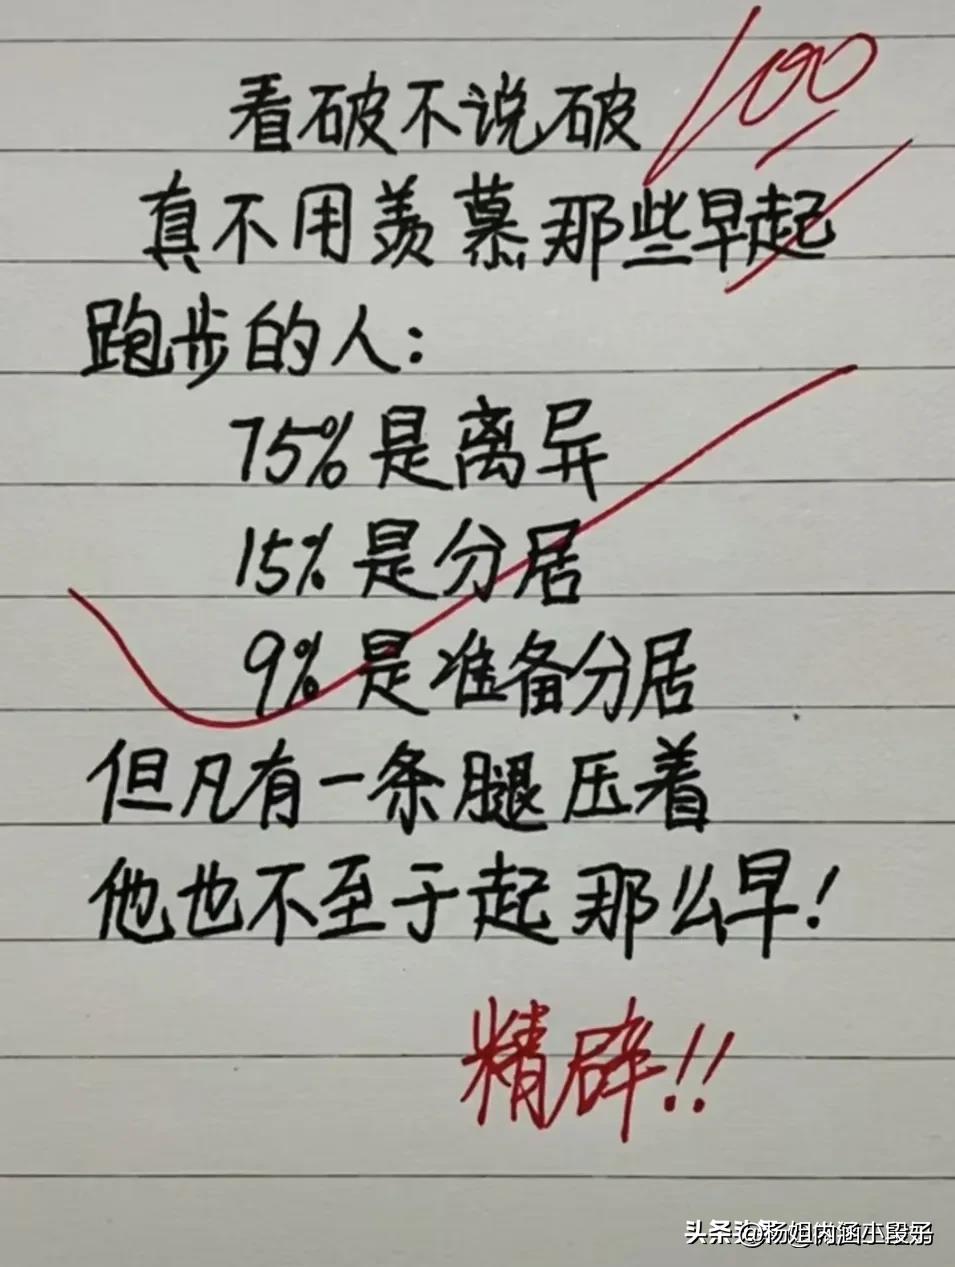 看破不说破
100
真不用羡慕那些早起
跑步的人:
75%是离异
15%是分居
9%是准备分居
但凡有一条腿压着
他也不至于起那么早!
精辟!!
头条 @杨姐内涵小段子